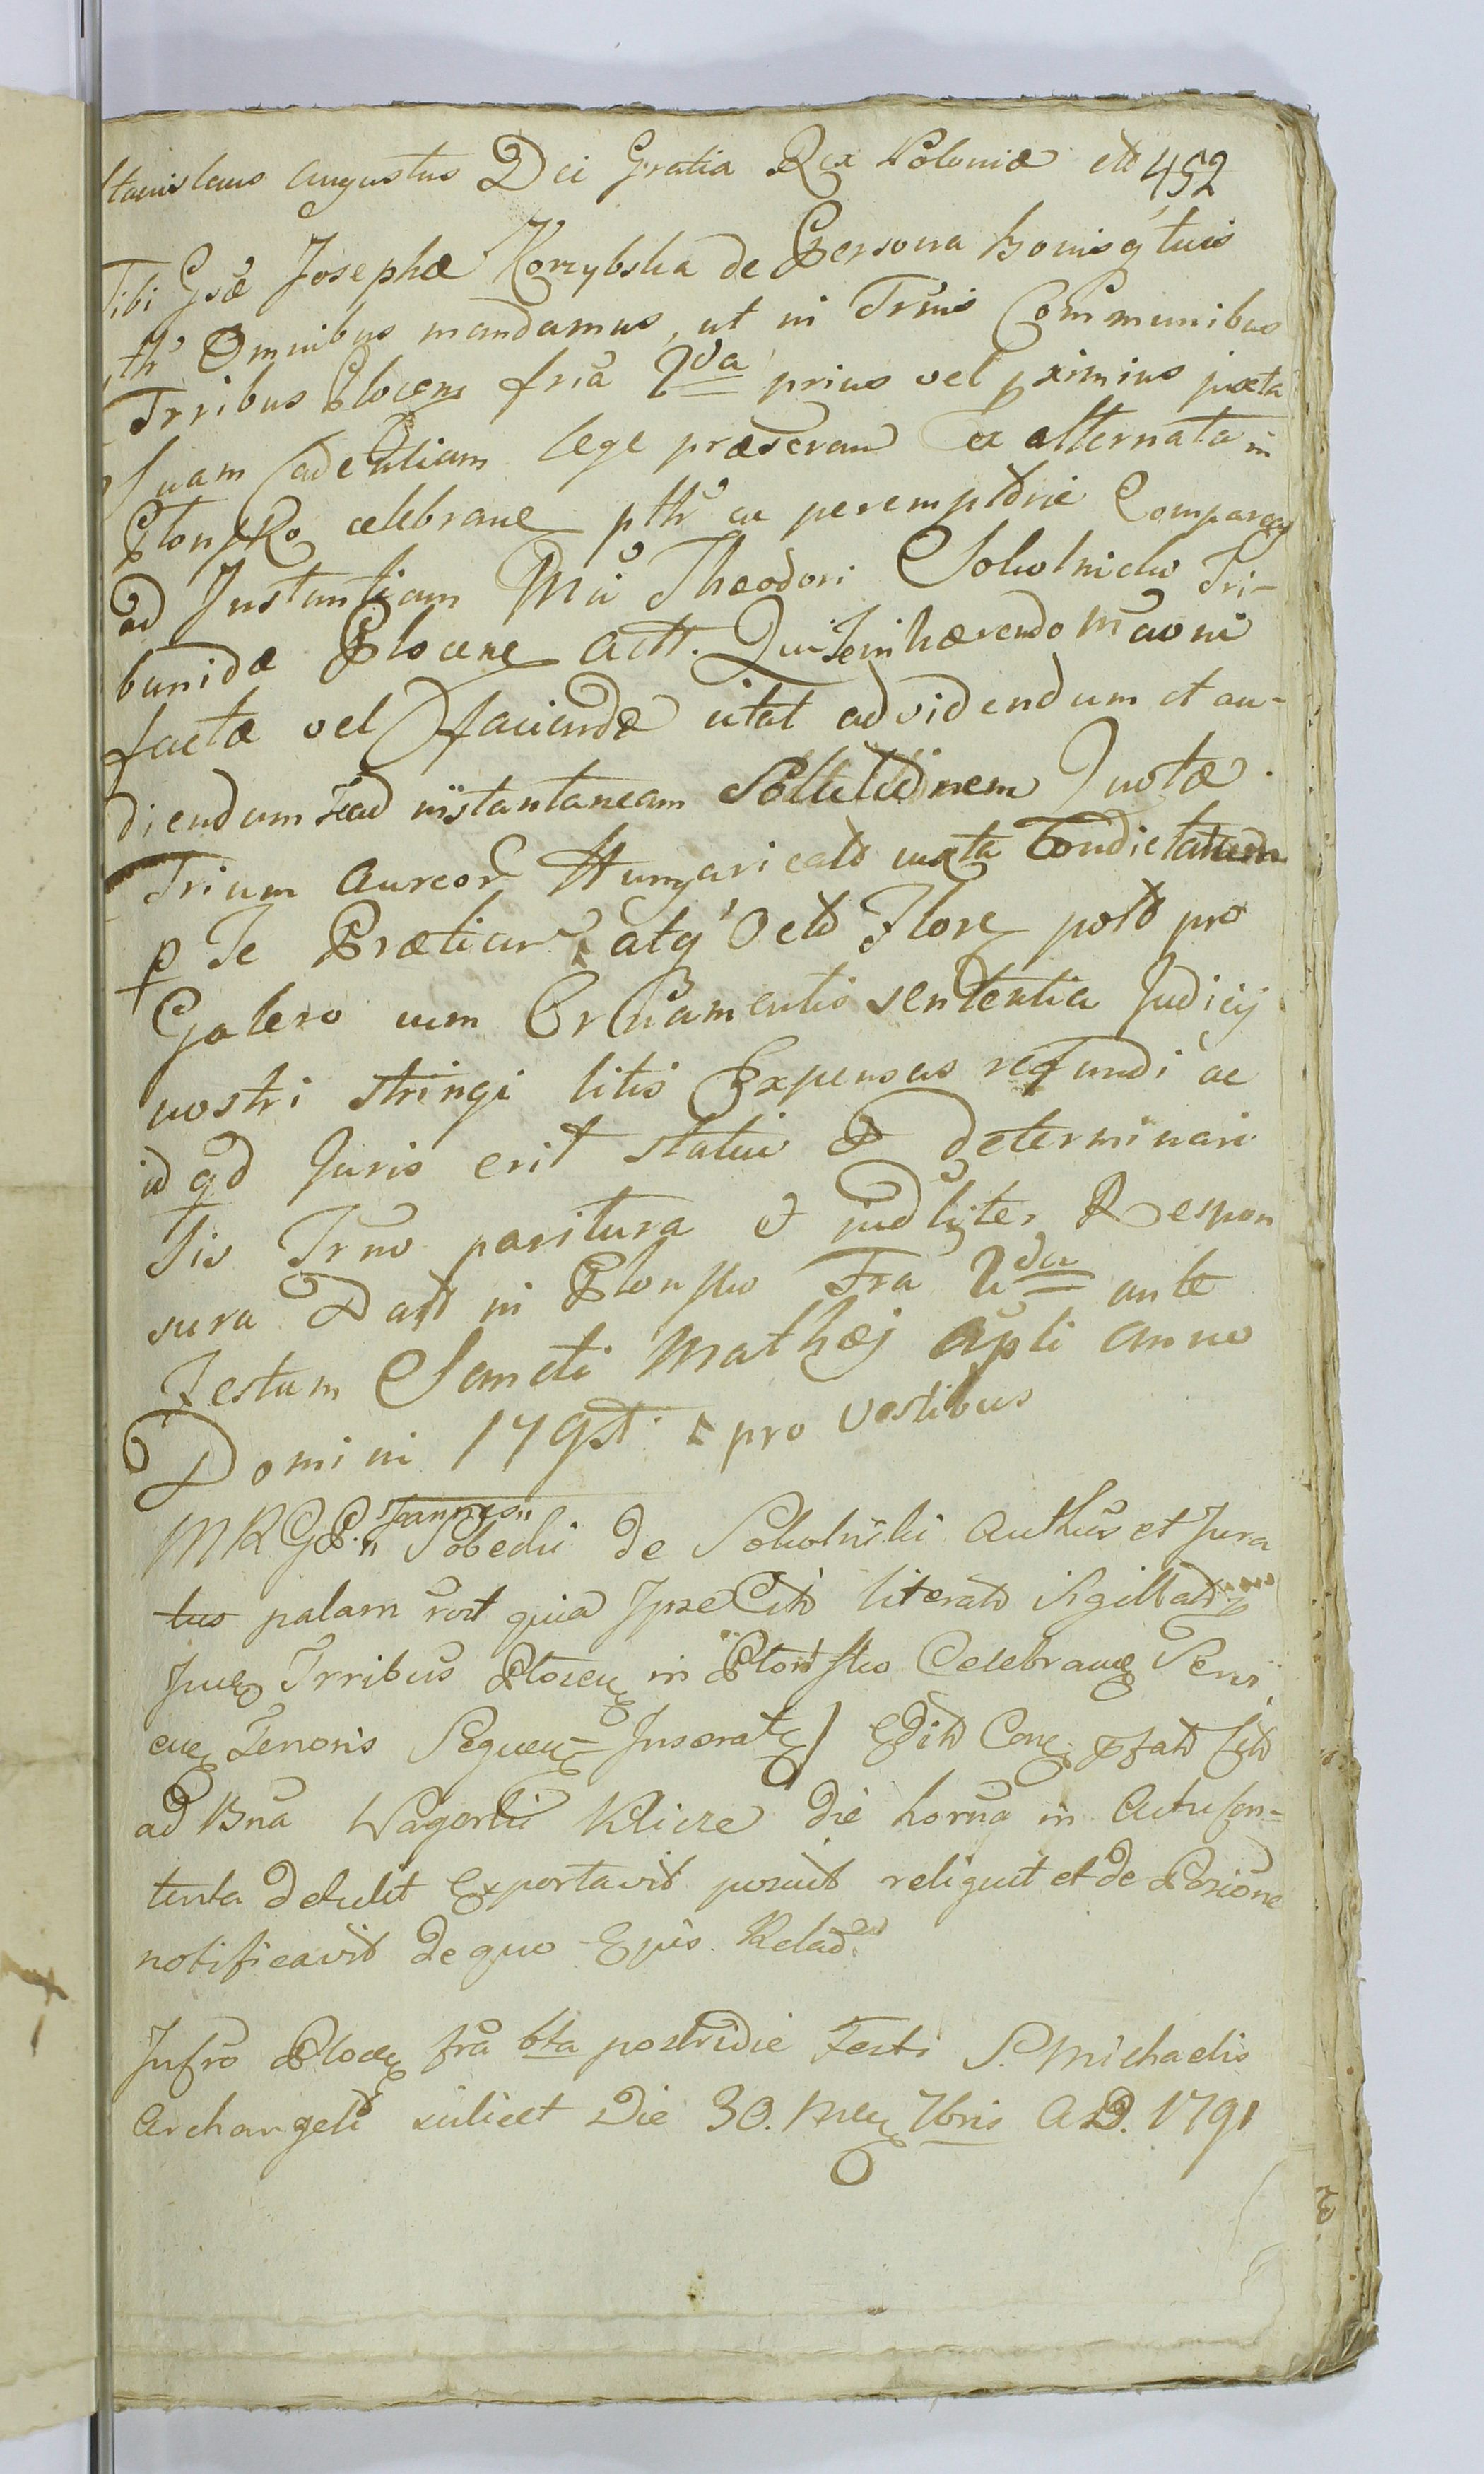 Stanislaus Augustus Dei Gratia Rex Poloniæ ett 452
Tibi Gsæ Josephæ Korzybska de Persona bonisq' tuis
pth' Omnibus mandamus, ut in Trmis Communibus
Trribus Plocens fria 2da prius vel pximius juxta
Suam Cadentiam lege præscram ex alternata in
Plonsko celebrane pthr ac peremptorie Compareas
ad Instantiam Mci Theodori Sokolnicki Tri-
bunidæ Plocene Actt. Qui Te inhærendo
factæ vel faciendæ citat ad videndum et au-
diendum Te ad instantaneam Solutudinem quotæ
Trium Aureor Hungaricald juxta Condictatum
p Te Prætiar atq' Octo Flore pold pro
Galero cum Ornamentis sententia Judicij
nostri stringi litis Expensas refundi ac
id qd Juris erit statui & determinari
Sis Trno paritura & judlijter Respon
sura Datt in Plonsko Fra 2da ante
Festum Sancti Mathæj Apli anno
Domini 179st pro Vestibus
MRGD. Joannes
Sobecki de Sokolniki Authus et Jura
tus palam rort quia Ipse Citt literatt sigillatt
Trribus Plocen in Plonsko Celebrane
ene Tenoris Sequen Inserate) Edito Cone pfatt
ad Bna Wagorki Klicze die horuq in Actu con-
tenta detulit Exportavit posuit reliquit et de Posione
notificavit de quo Ejus Relatt
Insro Plocen fra 6ta postridie Festi S. Michaelis
Archangeli scilicet Die 30. Men 7bris A D. 1791